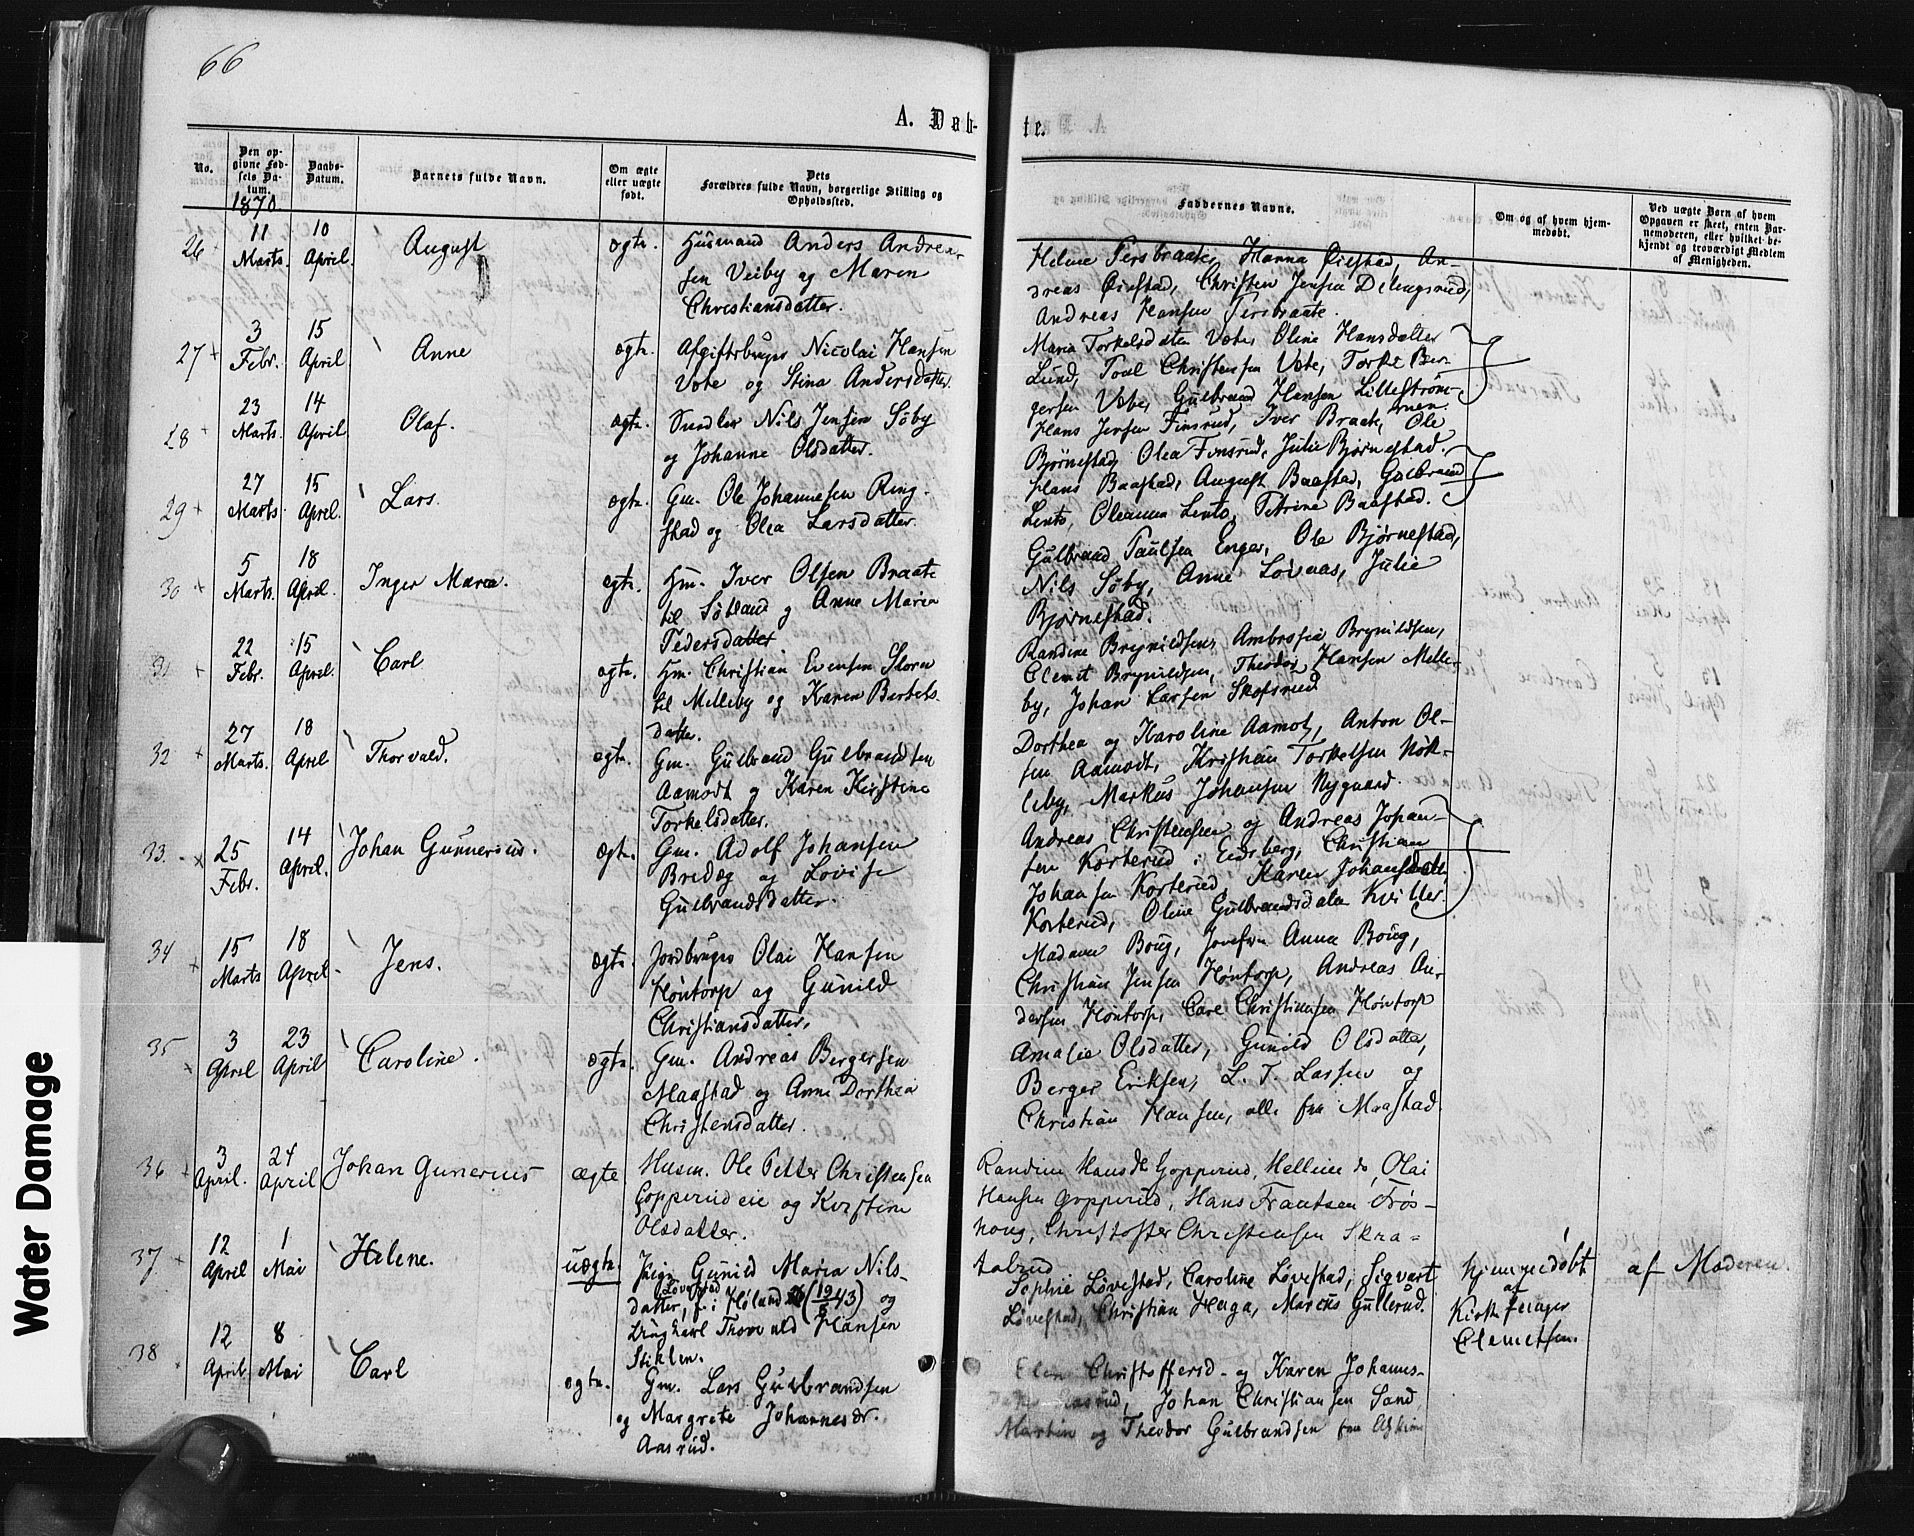 66
A. Døb-
te.
No.
Den op-
givne Fød-
sels Da-
tum.
Daabs-
Datum.
Barnets fulde Navn.
Om ægte
eller uægte
født.
Dets
Forældres fulde Navn, borgerlige Stilling og
Opholdssted.
Faddernes Navne.
Om og af hvem hjem-
medøbt.
Ved uægte Børn af hvem
Opgaven er skeet, enten Bar-
nemoderen, eller hvilket be-
kjendt og troværdigt Medlem
af Menigheden.
1870.
26 11 Marts. 10 April. August ægte. Husmand Anders Andrea-
sen Veiby og Maren
Christiansdatter.
Helene Fersbraate, Hanna Øiestad, An-
dreas Øiestad, Christian Jensen Dilingsrud,
Andreas Hansen Fersbraate.
27 3 Febr. 15 April Anne ægte. Afgiftsbruger Nicolai Hansen
Vote og Stina Andersdatter.
Maria Torkelsdatter Vote, Oline Hansdatter
Lund, Poul Christensen Vote, Torkel Ber-
gersen Vote, Gulbrand Hansen Lillestrøm-
men.
28 23 Marts. 14 April Olaf. ægte. Snedker Nils Jensen Søby
og Johanne Olsdatter.
Hans Jensen Finsrud, Iver Braate, Ole
Bjørnestad, Olea Finsrud, Julie Bjørnestad.
29 27 Marts 15 April. Lars. ægte. Gm. Ole Johannesen Ring-
stad og Olea Larsdatter.
Hans Baastad, August Baastad, Gulbrand
Lento, Oleanna Lento, Petrine Baastad.
30 5 Marts. 18 April. Inger Marea. ægte. Hm. Iver Olsen Braate
til Søtland og Anne Maria
Pedersdatter
Gulbrand Paulsen Enger, Ole Bjørnestad,
Nils Søby, Anne Løvaas, Julie
Bjørnestad.
31 22 Febr. 15 April. Carl ægte. Hm. Christian Evensen Storen
til Melleby og Karen Bertels-
datter.
Randine Brynildsen, Ambrosia Brynildsen,
Clemet Brynildsen, Theodor Hansen Melle-
by, Johan Larsen Skofsrud
32 27 Marts. 18 April Thorvald. ægte. Gm. Gulbrand Gulbrandsen
Aamodt og Karen Kirstine
Torkelsdatter.
Dorthea og Karoline Aamot, Anton Ol-
sen Aamodt, Kristian Torkelsen Røk-
leby, Markus Johansen Nygaard.
33. 25 Febr. 14 April. Johan Gunnerius. ægte. Gm. Adolf Johansen
Bredeg og Lovise
Gulbrandsdatter.
Andreas Christensen og Andreas Johan-
sen Korterud i Eidsberg, Christian
Johansen Korterud, Karen Johansdatter
Korterud, Oline Gulbrandsdatter Kviller.
34 15 Marts 18 April. Jens. ægte. Jordbruger Olai Hansen
Høntorp og Gunild
Christiansdatter.
Madame Boug, Josefin Anna Boug,
Christian Jensen Høntorp, Andreas An-
dersen Høntorp, Carl Christiansen Høntorp
35 3 April 23 April Caroline. ægte. Gm. Andreas Bergersen
Maastad og Anne Dorthea
Christensdatter.
Amalie Olsdatter, Gunild Olsdatter,
Berger Eriksen, L. T. Lassen og
Christian Hansen, alle fra Maastad
36 3 April. 24 April Johan Gunerius ægte Husm. Ole Petter Christensen
Gopperud eie og Kirstine
Olsdatter.
Randine Hansdtr Gopperud, Helline do, Olai
Hansen Gopperud, Hans Frantsen Frøs-
houg, Christoffer Christensen Skra-
tabrud
37 12 April 1 Mai Helene. uægte. Pige Gunild Maria Nils-
datter, Løvestad f. i Høland (19/8 43) og
Ungkarl Thorvald Hansen
Stiklen.
Sophie Løvestad, Caroline Løvestad, Sigvart
Løvestad, Christian Haga, Marcus Gullerud.
hjemmedøbt
af
Kirkesanger
Clemetsen.
af Moderen.
38 12 April 8 Mai Carl ægte. Gm. Lars Gulbrandsen
og Margrete Johannesdr.
Aasrud.
Elen Christoffersd. og Karen Johannes-
datter Aasrud, Johan Christiansen Sand
Martin og Theodor Gulbrandsen fra Askim
Water Damage